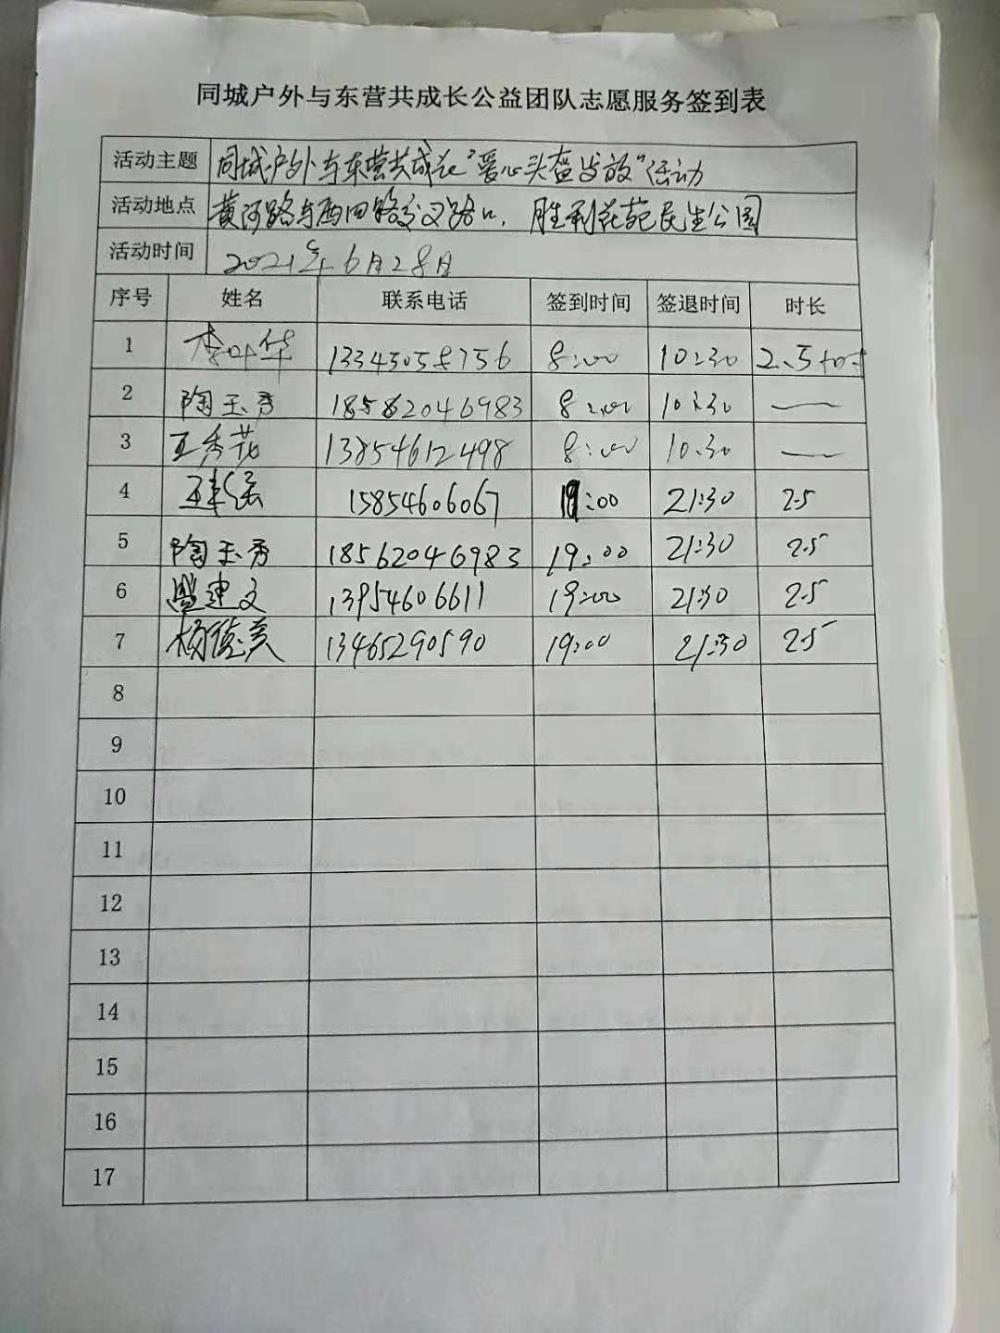 同城户外与东营共成长公益团队志愿服务签到表
活动主题 同城户外与东营共成长“爱心头盔发放”活动
活动地点 黄河路与西四路交叉路口，胜利花苑民生公园
活动时间 2021年6月28日
序号 姓名 联系电话 签到时间 签退时间 时长
1 李叶华 13345058756 8:00 10:30 2.5小时
2 陶玉秀 18562046983 8:00 10:30 —
3 王秀花 13854612498 8:00 10:30 —
4 15854606067 19:00 21:30 2.5
5 陶玉秀 18562046983 19:00 21:30 2.5
6 建文 13954606611 19:00 21:30 2.5
7 杨德美 13465290590 19:00 21:30 2.5
8
9
10
11
12
13
14
15
16
17